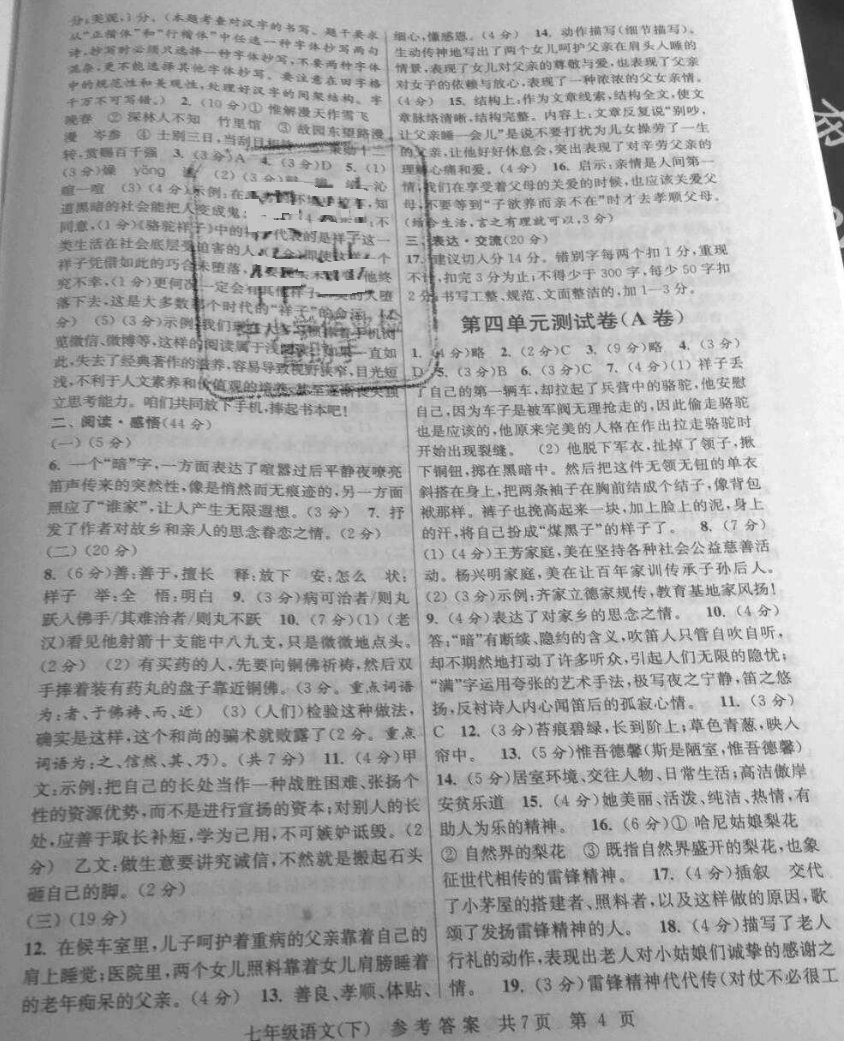 分;美观,1分。(本题考查对汉字的书写。题干要求
从“正楷体”和“行楷体”中任选一种字体抄写两句
诗,抄写时必须只选择一种字体抄写,不要两种字体
混杂,更不能选择其他字体抄写。要注意在田字格
中的规范性和美观性,处理好汉字的间架结构。字
千万不可写错。) 2. (10分)① 惟解漫天作雪飞
晚春 ② 深林人不知 竹里馆 ③ 故园东望路漫
漫 岑参 ④ 士别三日,当刮目相待 策勋十二
转,赏赐百千强 3. (3分)A 4. (3分)D 5. (1)
(3分)燥 yōng (2)(3分) 沁
暄一喧 (3)(4分)示例:在 知
道黑暗的社会能把人变成鬼; 不
同意,(1分)《骆驼祥子》中的 代表的是祥子这一
类生活在社会底层受迫害的人,(2分) 个
祥子凭借如此的巧合未堕落, 他终
究不幸,(1分)更何况 一定会有其他祥子 堕
落下去,这是大多数那个时代的“祥子”的命运。(1
分) (5)(3分)示例:我们 手机浏
览微信、微博等,这样的阅读属于浅 一直如
此,失去了经典著作的滋养,容易导致视野狭窄,目光短
浅,不利于人文素养和价值观的培养,甚至逐渐丧失独
立思考能力。咱们共同放下手机,捧起书本吧!
二、阅读·感悟(44分)
(一)(5分)
6. 一个“暗”字,一方面表达了喧嚣过后平静夜嘹亮
笛声传来的突然性,像是悄然而无痕迹的,另一方面
照应了“谁家”,让人产生无限遐想。(3分) 7. 抒
发了作者对故乡和亲人的思念眷恋之情。(2分)
(二)(20分)
8. (6分)善:善于,擅长 释:放下 安:怎么 状:
样子 举:全 悟:明白 9. (3分)病可治者/则丸
跃人佛手/其难治者/则丸不跃 10. (7分)(1)(老
汉)看见他射箭十支能中八九支,只是微微地点头。
(2分) (2) 有买药的人,先要向铜佛祈祷,然后双
手捧着装有药丸的盘子靠近铜佛。(3分。重点词语
为:者、于佛祷、而、近) (3)(人们)检验这种做法,
确实是这样,这个和尚的骗术就败露了(2分。重点
词语为:之、信然、其、乃)。(共7分) 11. (4分)甲
文:示例:把自己的长处当作一种战胜困难、张扬个
性的资源优势,而不是进行宣扬的资本;对别人的长
处,应善于取长补短,学为己用,不可嫉妒诋毁。(2
分) 乙文:做生意要讲究诚信,不然就是搬起石头
砸自己的脚。(2分)
(三)(19分)
12. 在候车室里,儿子呵护着重病的父亲靠着自己的
肩上睡觉;医院里,两个女儿照料靠着女儿肩膀睡着
的老年痴呆的父亲。(4分) 13. 善良、孝顺、体贴、
细心,懂感恩。(4分) 14. 动作描写(细节描写)。
生动传神地写出了两个女儿呵护父亲在肩头入睡的
情景,表现了女儿对父亲的尊敬与爱,也表现了父亲
对女子的依赖与放心,表现了一种浓浓的父女亲情。
(4分) 15. 结构上,作为文章线索,结构全文,使文
章脉络清晰,结构完整。内容上,文章反复说“别吵,
让父亲睡一会儿”是说不要打扰为儿女操劳了一生
的父亲,让他好好休息会,突出表现了对辛劳父亲的
理解心痛和爱。(4分) 16. 启示:亲情是人间第一
情,我们在享受着父母的关爱的时候,也应该关爱父
母,不要等到“子欲养而亲不在”时才去孝顺父母。
(结合生活,言之有理就可以,3分)
三、表达·交流(20分)
17. 建议切入分14分。错别字每两个扣1分,重现
不计,扣完3分为止;不得少于300字,每少50字扣
2分;书写工整、规范、文面整洁的,加1—3分。
第四单元测试卷(A卷)
1. (4分)略 2. (2分)C 3. (9分)略 4. (3分)
D 5. (3分)B 6. (3分)C 7. (4分)(1) 祥子丢
了自己的第一辆车,却拉起了兵营中的骆驼,他安慰
自己,因为车子是被军阀无理抢走的,因此偷走骆驼
也是应该的,他原来完美的人格在作出拉走骆驼时
开始出现裂缝。 (2) 他脱下军衣,扯掉了领子,揪
下铜钮,掷在黑暗中。然后把这件无领无钮的单衣
斜搭在身上,把两条袖子在胸前结成个结子,像背包
袱那样。裤子也挽高起来一块,加上脸上的泥,身上
的汗,将自己扮成“煤黑子”的样子了。 8. (7分)
(1)(4分)王芳家庭,美在坚持各种社会公益慈善活
动。杨兴明家庭,美在让百年家训传承子孙后人。
(2)(3分)示例:齐家立德家规传,教育基地家风扬!
9. (4分)表达了对家乡的思念之情。 10. (4分)
答:“暗”有断续、隐约的含义,吹笛人只管自吹自听,
却不期然地打动了许多听众,引起人们无限的隐忧;
“满”字运用夸张的艺术手法,极写夜之宁静,笛之悠
扬,反衬诗人内心闻笛后的孤寂心情。 11. (3分)
C 12. (3分)苔痕碧绿,长到阶上;草色青葱,映人
帘中。 13. (5分)惟吾德馨(斯是陋室,惟吾德馨)
14. (5分)居室环境、交往人物、日常生活;高洁傲岸
安贫乐道 15. (4分)她美丽、活泼、纯洁、热情,有
助人为乐的精神。 16. (6分)① 哈尼姑娘梨花
② 自然界的梨花 ③ 既指自然界盛开的梨花,也象
征世代相传的雷锋精神。 17. (4分)插叙 交代
了小茅屋的搭建者、照料者,以及这样做的原因,歌
颂了发扬雷锋精神的人。 18. (4分)描写了老人
行礼的动作,表现出老人对小姑娘们诚挚的感谢之
情。 19. (3分)雷锋精神代代传(对仗不必很工
七年级语文(下) 参考答案 共7页 第4页